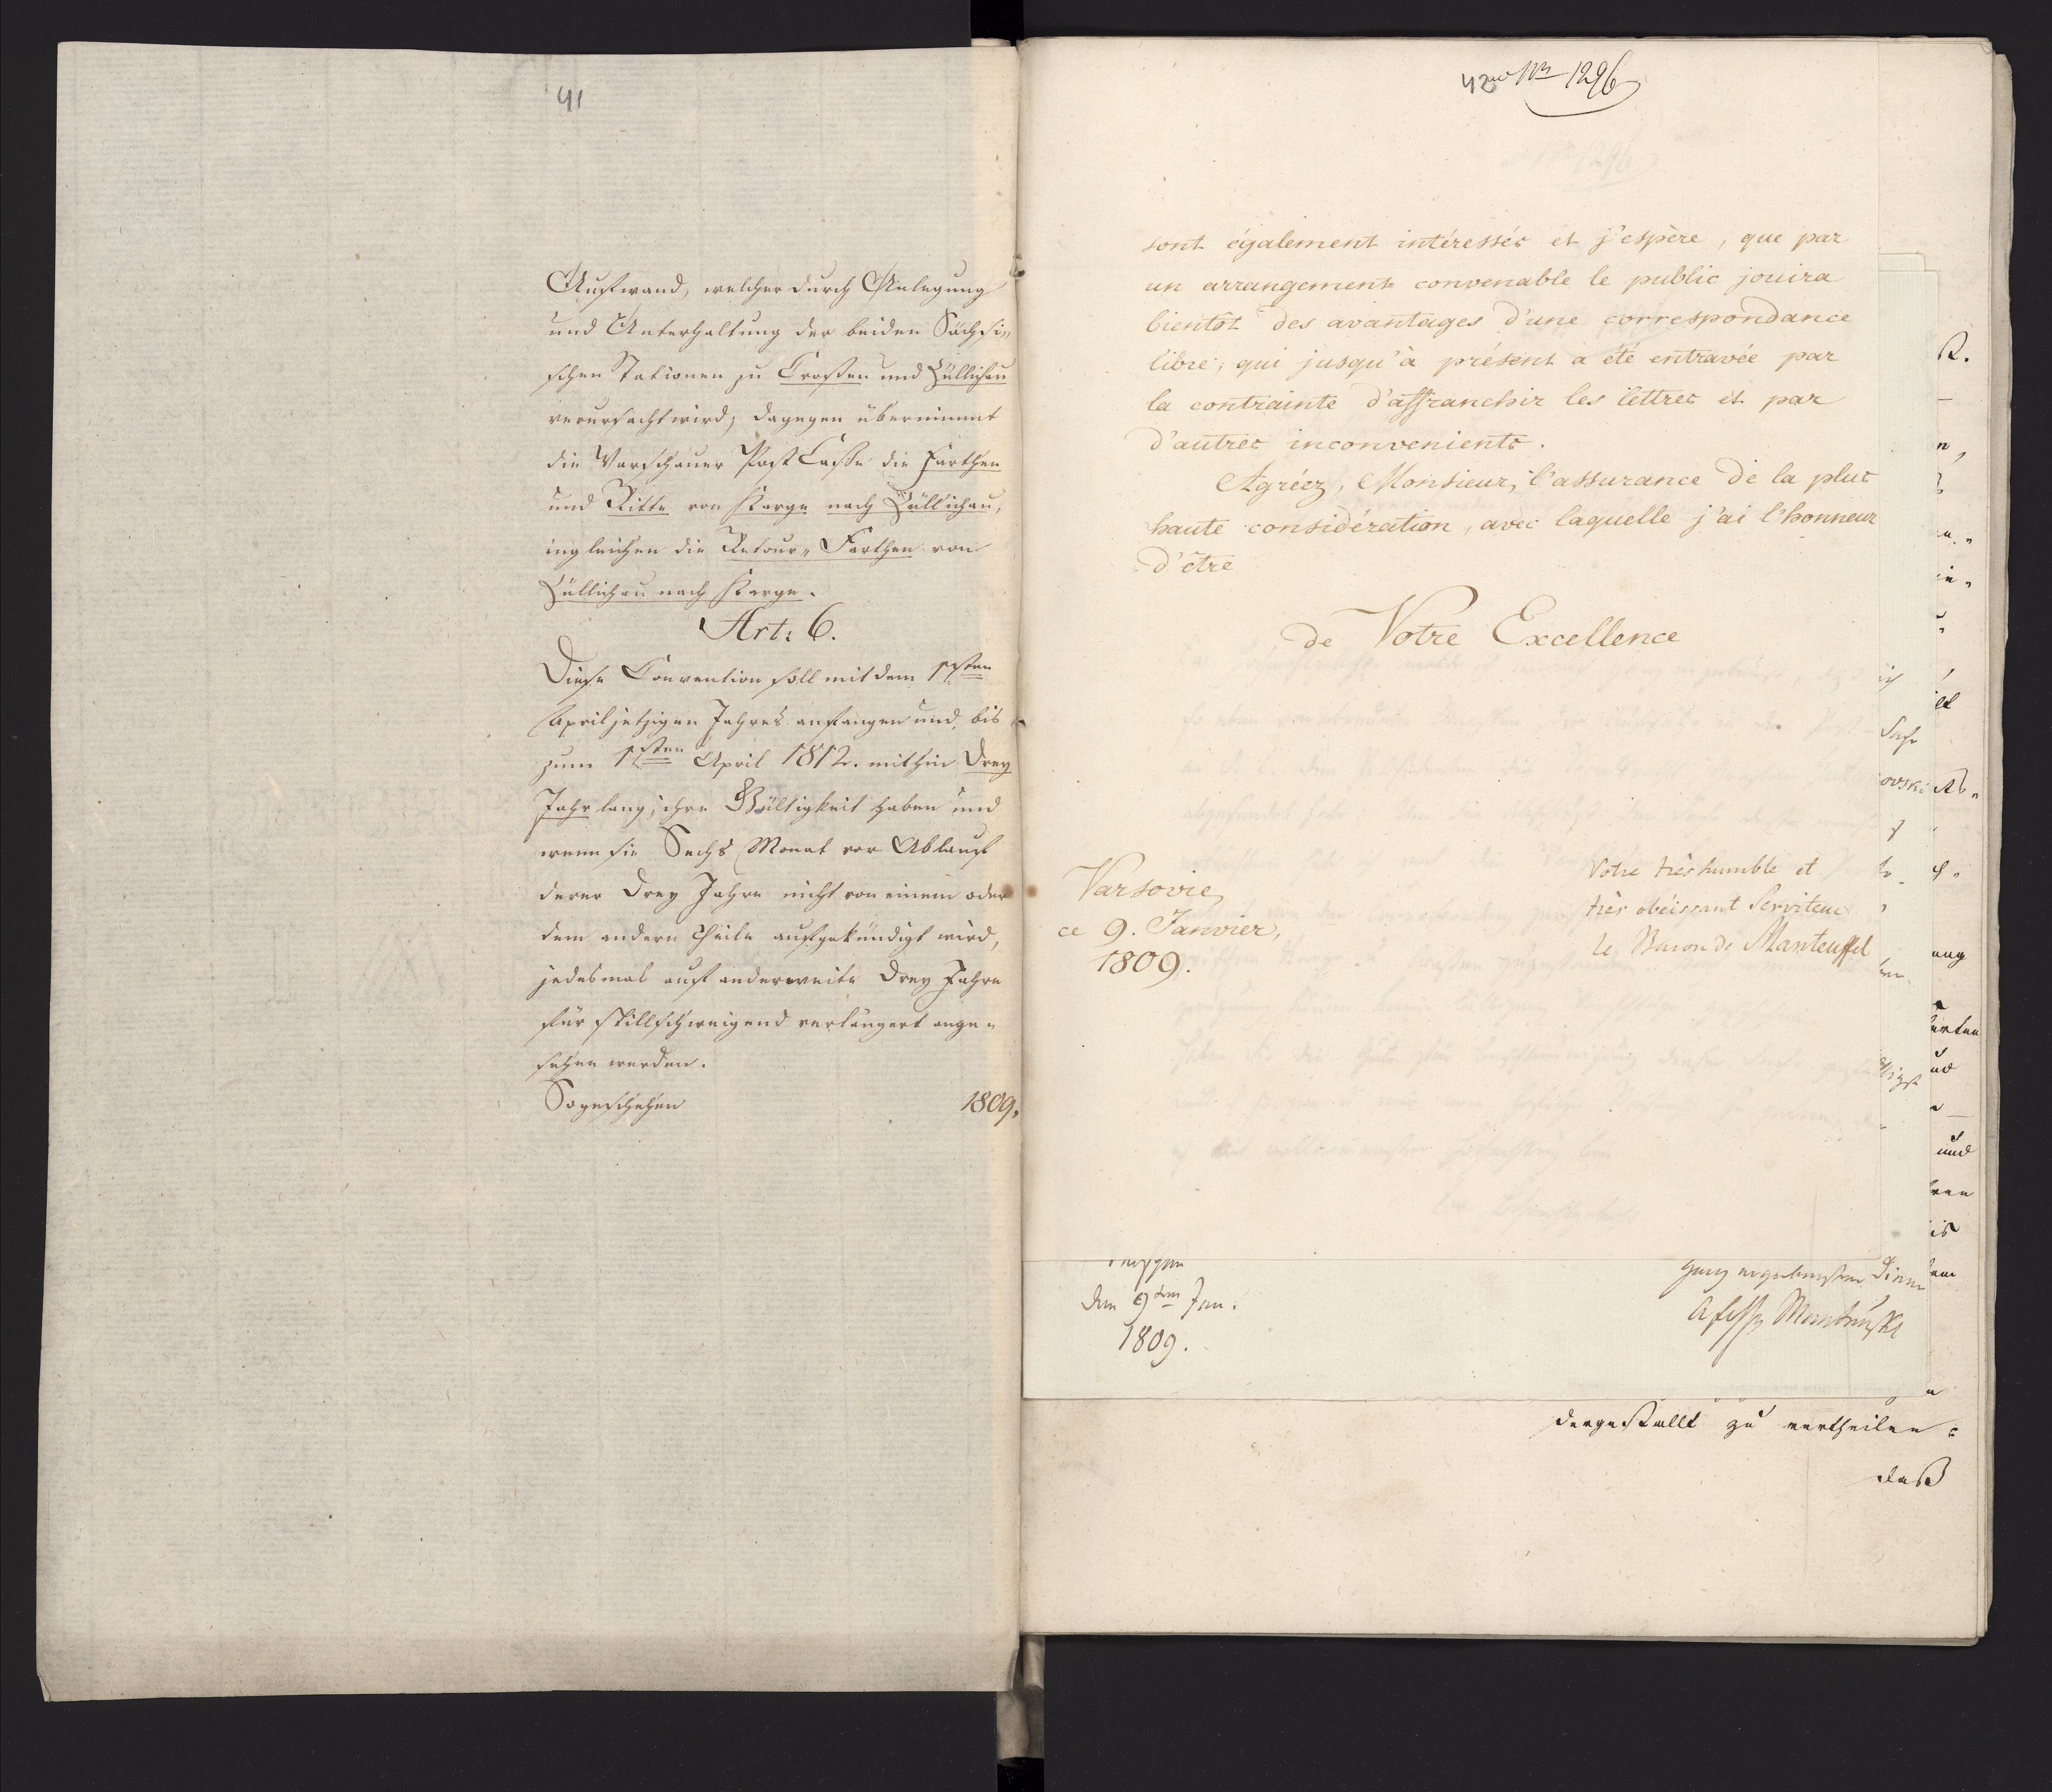 41
Aufwand, welcher durch Anlegung
und Unterhaltung der beiden Sächsi„
schen Stationen zu Croßen und Züllichau
verursacht wird, dagegen übernimmt
die Warschauer Post Casse die Farthen
und Ritte von Karge nach Züllichau,
ingleichen die Retour„Farthen von
Züllichau nach Karge.
Art: 6.
Diese Convention soll mit dem 1sten
April jetzigen Jahres anfangen und, bis
zum 1sten April 1812. mithin Drey
Jahr lang, ihre Gültigkeit haben und
wenn sie Sechs Monat vor Ablauf
derer Drey Jahre nicht von einem oder
dem andern Theile aufgekündigt wird,
jedesmal auf anderweite Drey Jahre
für stillschweigend verlängert ange„
sehen werden.
So geschehen 1809.
42 1296
sont également intéressés et j'espère, que par
un arrangement convenable le public jouira
bientôt des avantages d'une correspondance
libre, qui jusqu'à présent a été entravée par
la contrainte d'affranchir les lettres et par
d'autres inconvenients.
Agréez, Monsieur, l'assurance de la plus
haute considération, avec laquelle j'ai l'honneur
d'être
de Votre Excellence
Votre très humble et
très obéissant Serviteur
le Baron de Manteuffel
Varsovie,
ce 9. Janvier,
1809.
den 9ten Jan.
1809.
ganz ergebenster Diener
dergestallt zu vertheilen:
daß